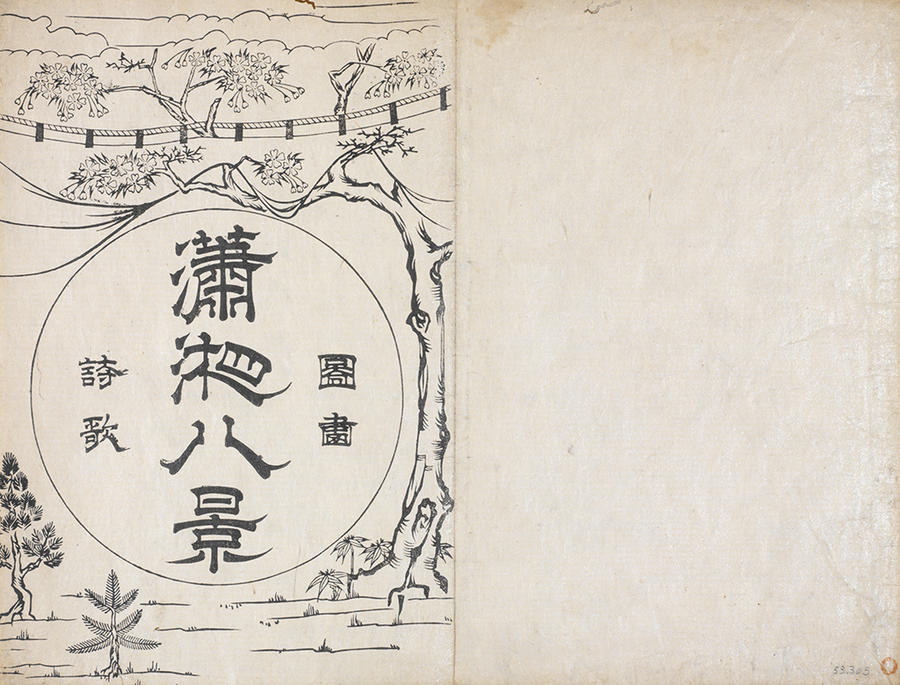 圖畫
瀟湘八景
詩歌
53.305